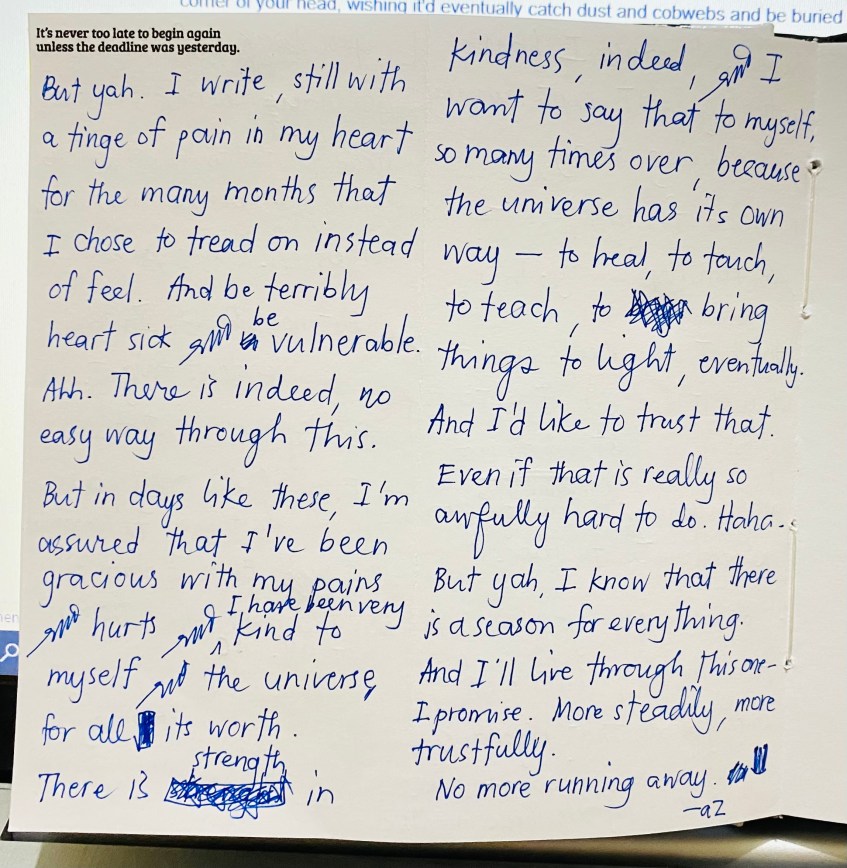 corner of your head, wishing it'd eventually catch dust and cobwebs and be buried
It's never too late to begin again
unless the deadline was yesterday.
But yah. I write, still with
a tinge of pain in my heart
for the many months that
I chose to tread on instead
of feel. And be terribly
heart sick and be vulnerable.
Ahh. There is indeed, no
easy way through this.
But in days like these, I'm
assured that I've been
gracious with my pains
and hurts and I have been very kind to
myself and the universe,
for all its worth.
There is strength in
kindness, indeed, and I
want to say that to myself,
so many times over, because
the universe has its own
way — to heal, to touch,
to teach, to bring
things to light, eventually.
And I'd like to trust that.
Even if that is really so
awfully hard to do. Haha.
But yah, I know that there
is a season for everything.
And I'll live through this one-
I promise. More steadily, more
trustfully.
No more running away.
-az